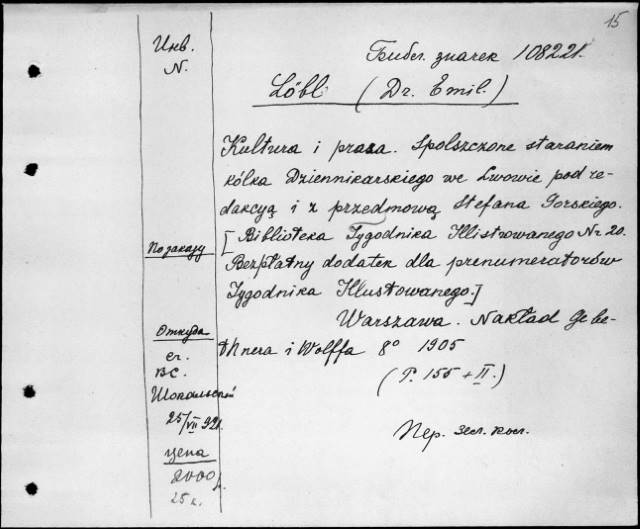 15
Инв.
N.
Библ. значек 108221.
Löbl (Dr. Emil.)
Kultura i prasa. Spolszczone staraniem
kółka Dziennikarskiego we Lwowie pod re-
dakcyą i z przedmową Stefana Gorskiego.
[Biblioteka Tygodnika Illistrowanego Nr 20.
Bezpłatny dodatek dla prenumeratorów
Tygodnika Illustowanego.]
Warszawa. Nakład Gebe-
thnera i Wolffa 8° 1905
(P. 155 + II.)
Пер. зел. кол.
По заказу
Откуда
ег.
вс.
25/VII 921.
цена
2000 р.
25 к.